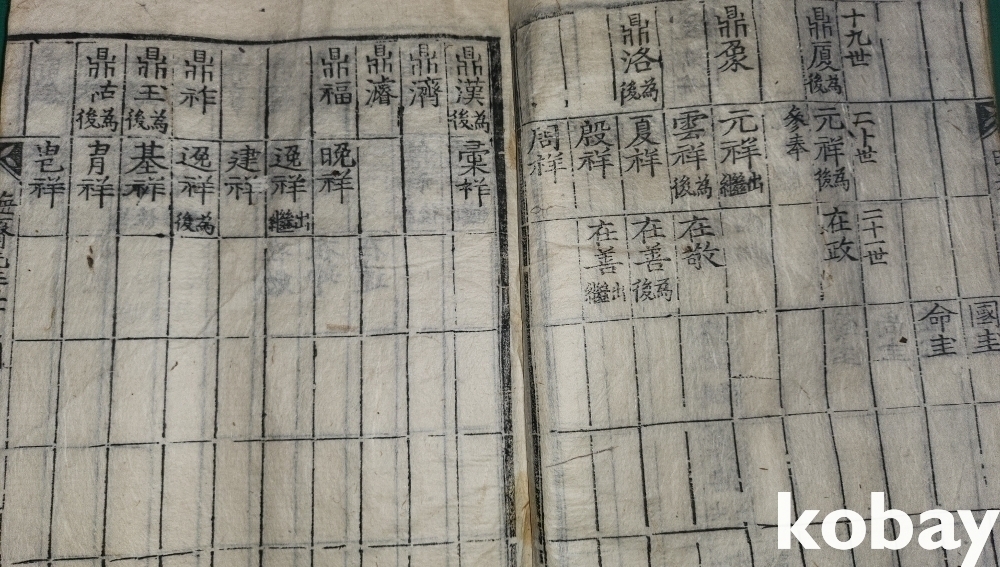 國圭
命圭
十九世
二十世
二十一世
鼎厦 為後
元祥 為後
在政
參奉
鼎象
元祥 出繼
雲祥 為後
在敬
鼎洛 為後
夏祥
在善 為後
殷祥
在善 出繼
周祥
鼎漢 為後
彙祥
鼎濟
鼎濬
鼎福
晚祥
逸祥 出繼
建祥
鼎祚
逸祥 為後
鼎玉 為後
基祥
鼎 為後
胄祥
祥
kobay